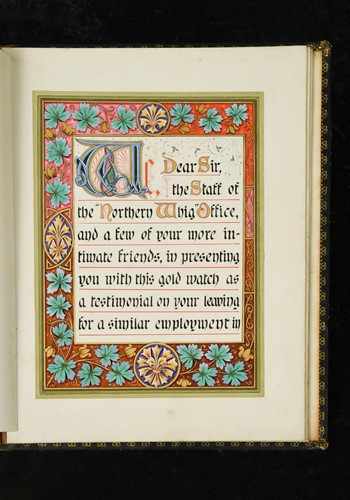 Dear Sir,
We, the Staff of
the "Northern Whig" Office,
and a few of your more in-
timate friends, in presenting
you with this gold watch as
a testimonial on your leaving
for a similar employment in